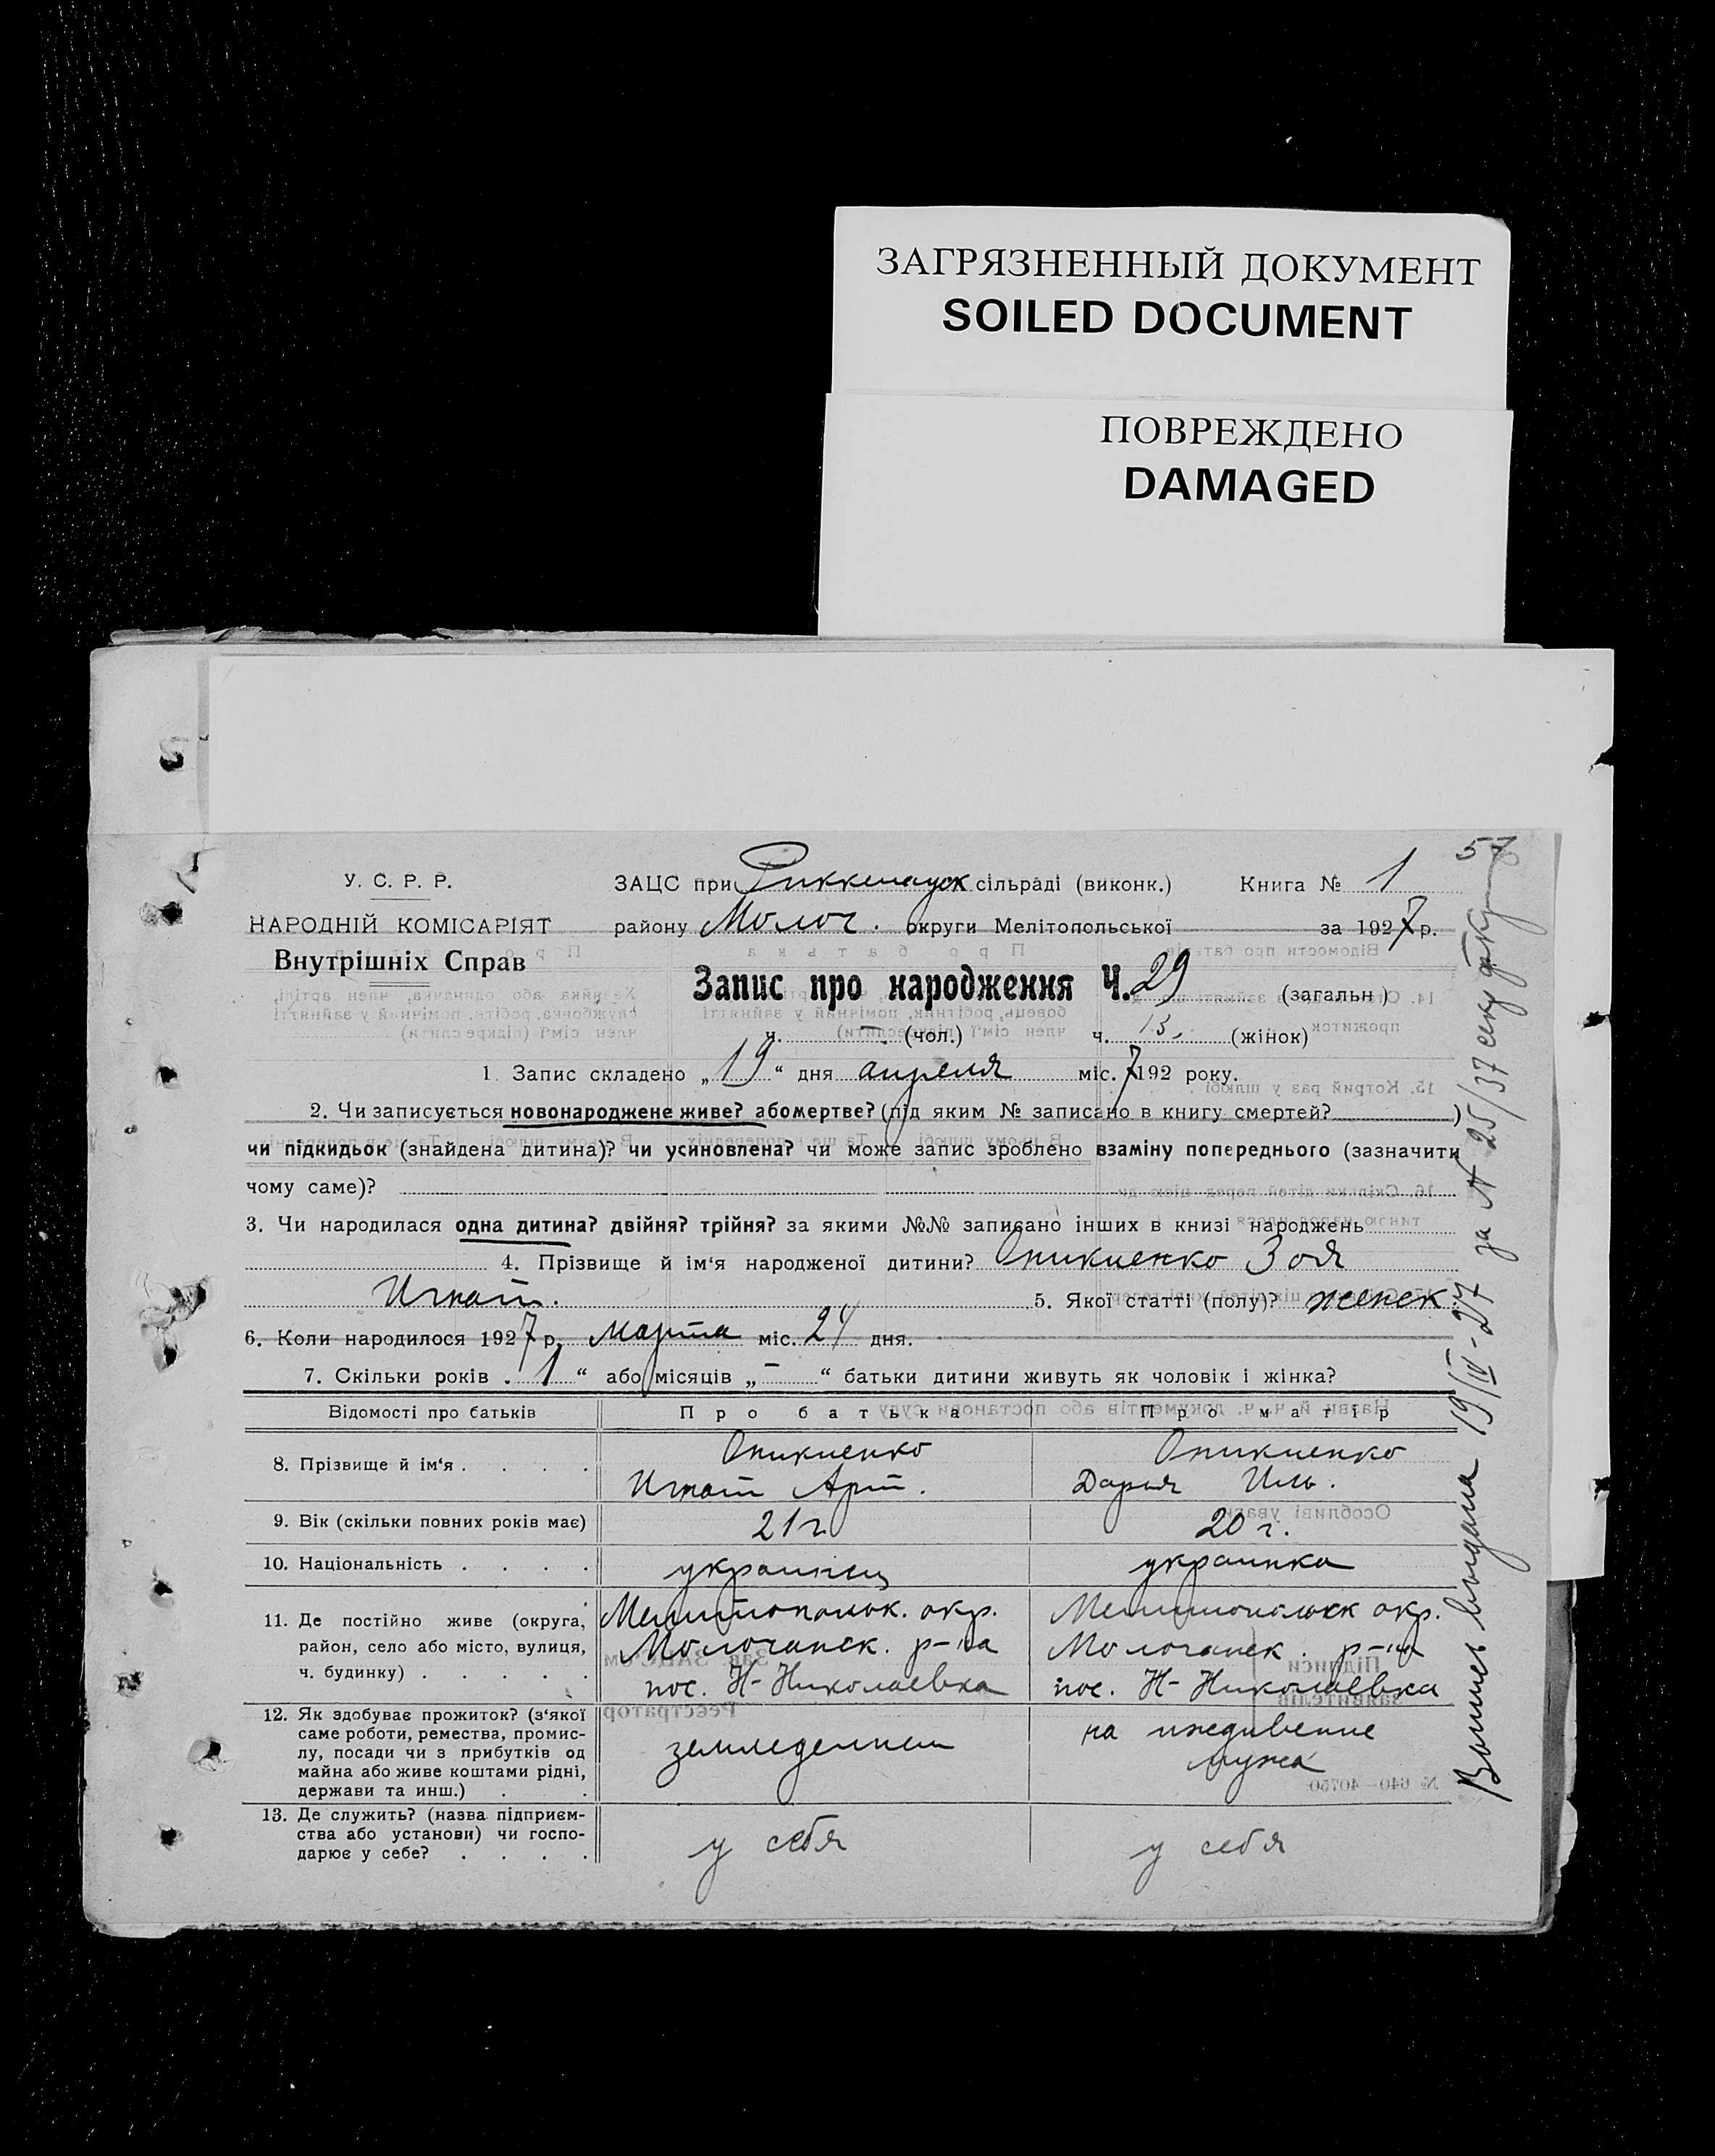 ЗАГРЯЗНЕННЫЙ ДОКУМЕНТ
SOILED DOCUMENT
ПОВРЕЖДЕНО
DAMAGED
57
У. С. Р. Р.
НАРОДНІЙ КОМІСАРІЯТ
Внутрішніх Справ
ЗАЦС при сільраді (виконк.) Книга № 1
району Молоч. округи Мелітопольської за 1927 р.
Запис про народження Ч. 29 (загальн)
ч. — (чол.) ч. 15. (жінок)
1. Запис складено „19“ дня апреля міс. 7 192 року.
2. Чи записується новонароджене живе? або мертве? (під яким № записано в книгу смертей? )
чи підкидьок (знайдена дитина)? чи усиновлена? чи може запис зроблено взаміну попереднього (зазначити
чому саме)?
3. Чи народилася одна дитина? двійня? трійня? за якими №№ записано інших в книзі народжень
4. Прізвище й ім‘я народженої дитини? Зоя
Игнат. 5. Якої статті (полу)? женск.
6. Коли народилося 1927 р. марта міс. 24 дня.
7. Скільки років . 1 “ або місяців „ — “ батьки дитини живуть як чоловік і жінка?
Відомості про батьків Про батька Про матір
8. Прізвище й ім‘я . . . .
Игнат Арт. Дарья Иль.
9. Вік (скільки повних років має) 21 г. 20 г.
10. Національність . . . . украинец украинка
11. Де постійно живе (округа, район, село або місто, вулиця, ч. будинку) . . . . .
Мелитопольск. окр. Мелитопольск окр.
Молочанск. р-на Молочанск. р-на
пос. Н-Николаевка пос. Н-Николаевка
12. Як здобуває прожиток? (з‘якої
саме роботи, ремества, промис-
лу, посади чи з прибутків од
майна або живе коштами рідні,
держави та инш.) . .
земледелием на иждивение
мужа
13. Де служить? (назва підприєм-
ства або установи) чи госпо-
дарює у себе? . . . .
у себя у себя
выдана 19/IV-27 за № 25/37